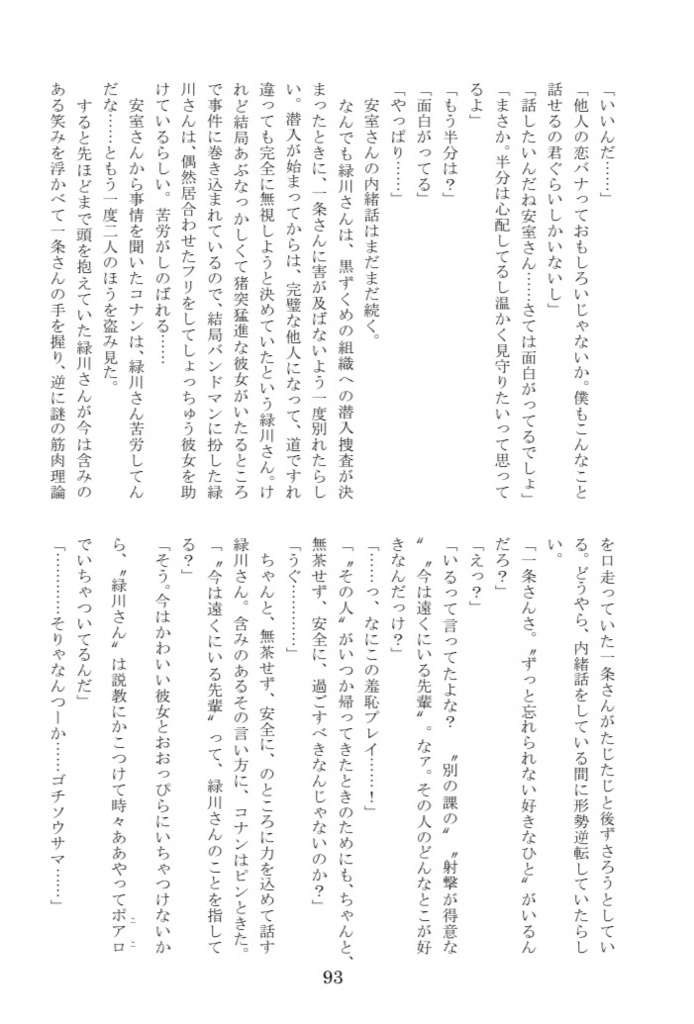 「いいんだ……」
「他人の恋バナっておもしろいじゃないか。僕もこんなこと
話せるの君ぐらいしかいないし」
「話したいんだね安室さん……さては面白がってるでしょ」
「まさか。半分は心配してるし温かく見守りたいって思って
るよ」
「もう半分は?」
「面白がってる」
「やっぱり……」
安室さんの内緒話はまだまだ続く。
なんでも緑川さんは、黒ずくめの組織への潜入捜査が決
まったときに、一条さんに害が及ばないよう一度別れたらし
い。潜入が始まってからは、完璧な他人になって、道ですれ
違っても完全に無視しようと決めていたという緑川さん。け
れど結局あぶなっかしくて猪突猛進な彼女がいたるところ
で事件に巻き込まれているので、結局バンドマンに扮した緑
川さんは、偶然居合わせたフリをしてしょっちゅう彼女を助
けているらしい。苦労がしのばれる……
安室さんから事情を聞いたコナンは、緑川さん苦労してん
だな……ともう一度二人のほうを盗み見た。
すると先ほどまで頭を抱えていた緑川さんが今は含みの
ある笑みを浮かべて一条さんの手を握り、逆に謎の筋肉理論
を口走っていた一条さんがたじたじと後ずさろうとしてい
る。どうやら、内緒話をしている間に形勢逆転していたらし
い。
「一条さんさ。〝ずっと忘れられない好きなひと〟がいるん
だろ?」
「えっ?」
「いるって言ってたよな? 〝別の課の〟〝射撃が得意な〟
〝今は遠くにいる先輩〟。なァ。その人のどんなとこが好
きなんだっけ?」
「……っ、なにこの羞恥プレイ……!」
「〝その人〟がいつか帰ってきたときのためにも、ちゃんと、
無茶せず、安全に、過ごすべきなんじゃないのか?」
「うぐ…………」
ちゃんと、無茶せず、安全に、のところに力を込めて話す
緑川さん。含みのあるその言い方に、コナンはピンときた。
「〝今は遠くにいる先輩〟って、緑川さんのことを指して
る?」
「そう。今はかわいい彼女とおおっぴらにいちゃつけないか
ら、〝緑川さん〟は説教にかこつけて時々ああやってポアロ
ここ
でいちゃついてるんだ」
「…………そりゃなんつーか……ゴチソウサマ……」
93